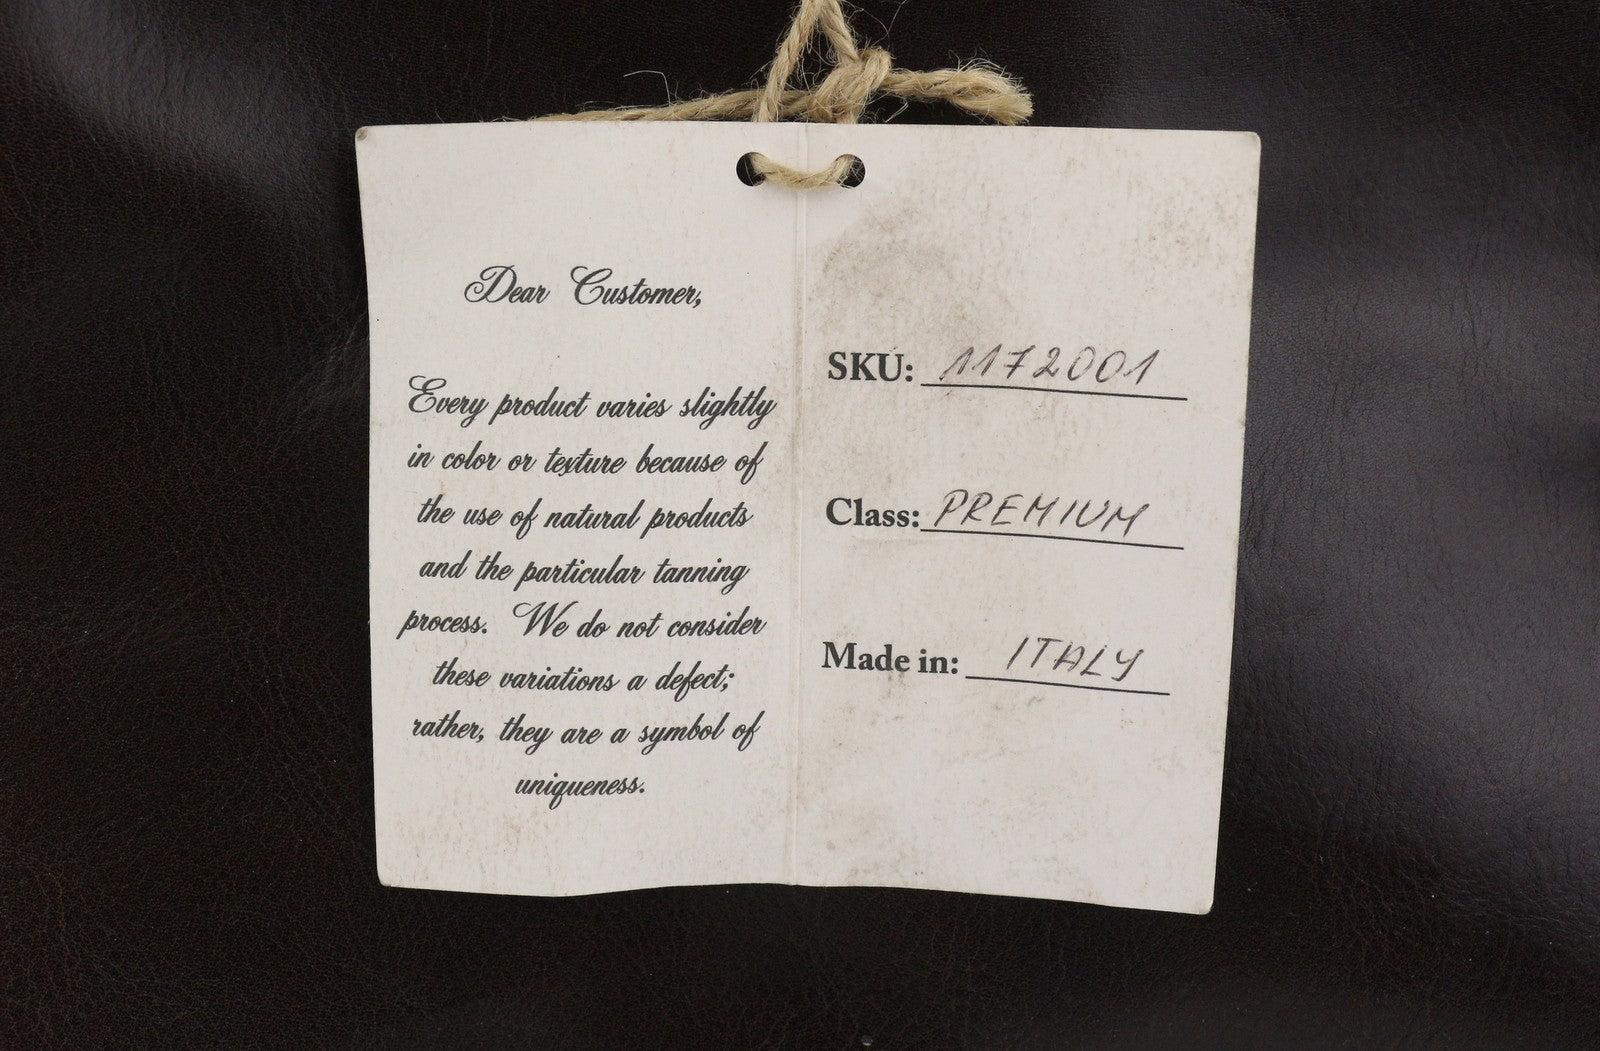 Dear Customer,
Every product varies slightly
in color or texture because of
the use of natural products
and the particular tanning
process. We do not consider
these variations a defect;
rather, they are a symbol of
uniqueness.
SKU: 1172001
Class: PREMIUM
Made in: ITALY